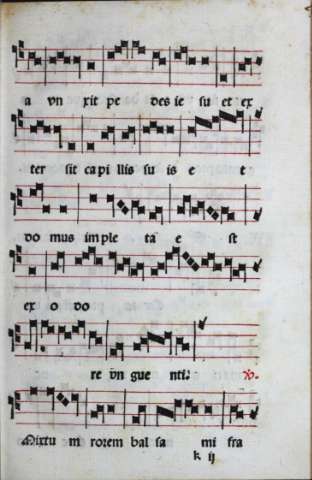 a vn xit pe des ie su et ex
ter sit capi llis su is e t
do mus im ple ta e st
ex o do
re vn gue nti. V.
Mixtu m rorem bal sa mi fra
k ij